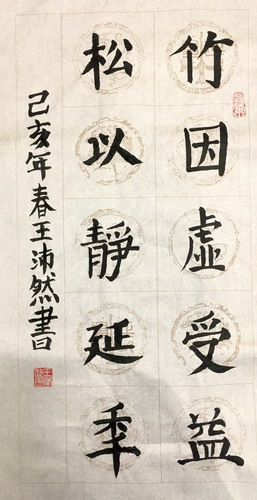 竹因虚受益
松以靜延秊
己亥年春王沛然書